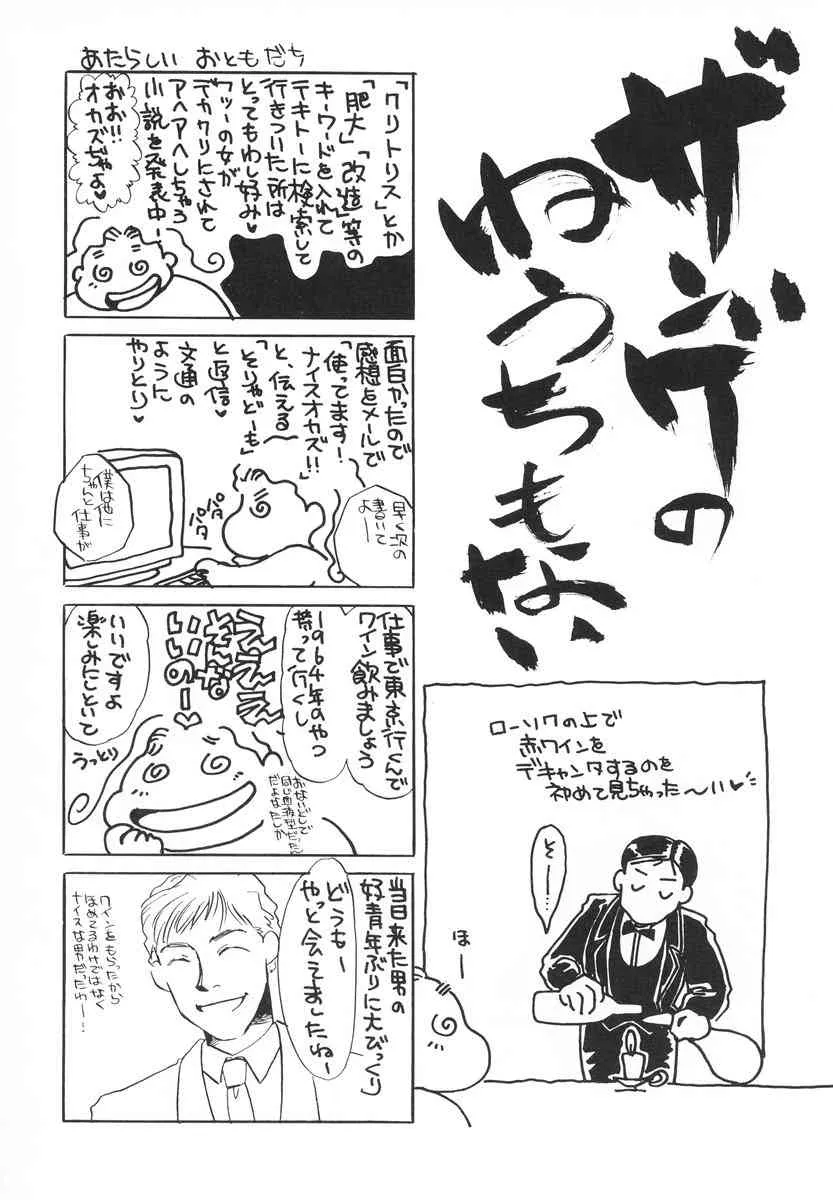 ザンゲの
ねうちもない
ローソクの上で
赤ワインを
デキャンタするのを
初めて見ちゃった〜い♥
とー…
ほー
あたらしい おともだち
「クリトリス」とか
「肥大」「改造」等の
キーワードを入れて
テキトーに検索して
行きついた所は
とってもわし好み♥
フツーの女が
デカクリにされて
アヘアヘしちゃう
小説を発表中ー
おお!!
オカズぢゃよ♥
面白かったので
感想をメールで
「使ってます!
ナイスオカズ!!」
と、伝える
「そりゃどーも」
と返信
文通の
ように
やりとり♥
早く次の
書いて
よー
パタ
パタ
僕は他に
ちゃんと仕事が
仕事で東京行くんで
ワイン飲みましょう
1964年のやつ
持って行くし
うえええ
そんな
いいの〜♥
いいですよ
楽しみにしといて
うっとり
おないどしで
同じ血液型だった〜
だよなたしか
当日来た男の
好青年ぶりに大びっくり
どうもー
やっと会えましたねー
ワインをもらったから
ほめてるわけではなく
ナイスな男だったわー…